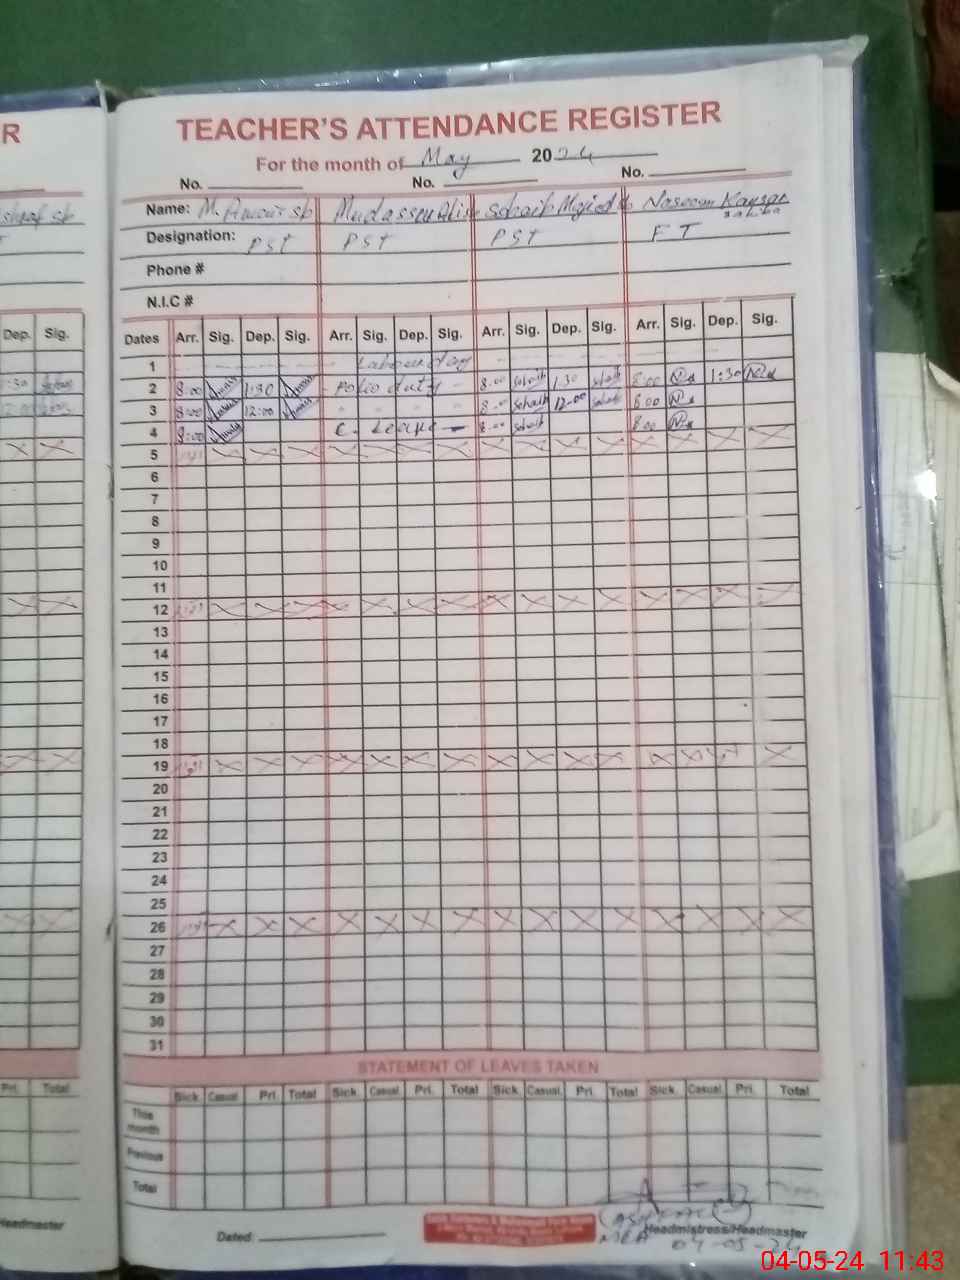 R
TEACHER'S ATTENDANCE REGISTER
For the month of May 2024
No. No. No.
Name: M. Anwar sb Mudasser Ali Sohaib Majid Naseem Kausar
Sahiba
Designation: PST PST PST FT
Phone #
N.I.C #
Dep. Sig. Dates Arr. Sig. Dep. Sig. Arr. Sig. Dep. Sig. Arr. Sig. Dep. Sig. Arr. Sig. Dep. Sig.
1 Labour day
2 8:00 1:30 Polio duty 8.00 sohaib 1.30 sohaib 8:00 1:30
3 8:00 12:00 8.00 sohaib 12-00 sohaib 8:00
4 8:00 C. Leave 8.00 sohaib 8.00
5
6
7
8
9
10
11
12
13
14
15
16
17
18
19
20
21
22
23
24
25
26
27
28
29
30
31
STATEMENT OF LEAVES TAKEN
Pri. Total Sick Casual Pri. Total Sick. Casual Pri. Total Sick. Casual. Pri. Total Sick. Casual. Pri. Total
This month
Previous
Total
Headmaster Dated: Headmistress/Headmaster
MEA 04-05-24
04-05-24 11:43